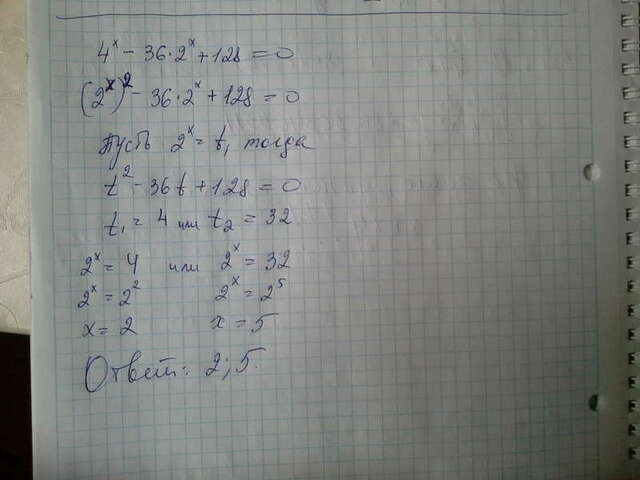 4ˣ - 36·2ˣ + 128 = 0
(2ˣ)² - 36·2ˣ + 128 = 0
Пусть 2ˣ = t, тогда
t² - 36t + 128 = 0
t₁ = 4 или t₂ = 32
2ˣ = 4 или 2ˣ = 32
2ˣ = 2² 2ˣ = 2⁵
x = 2 x = 5
Ответ: 2; 5.